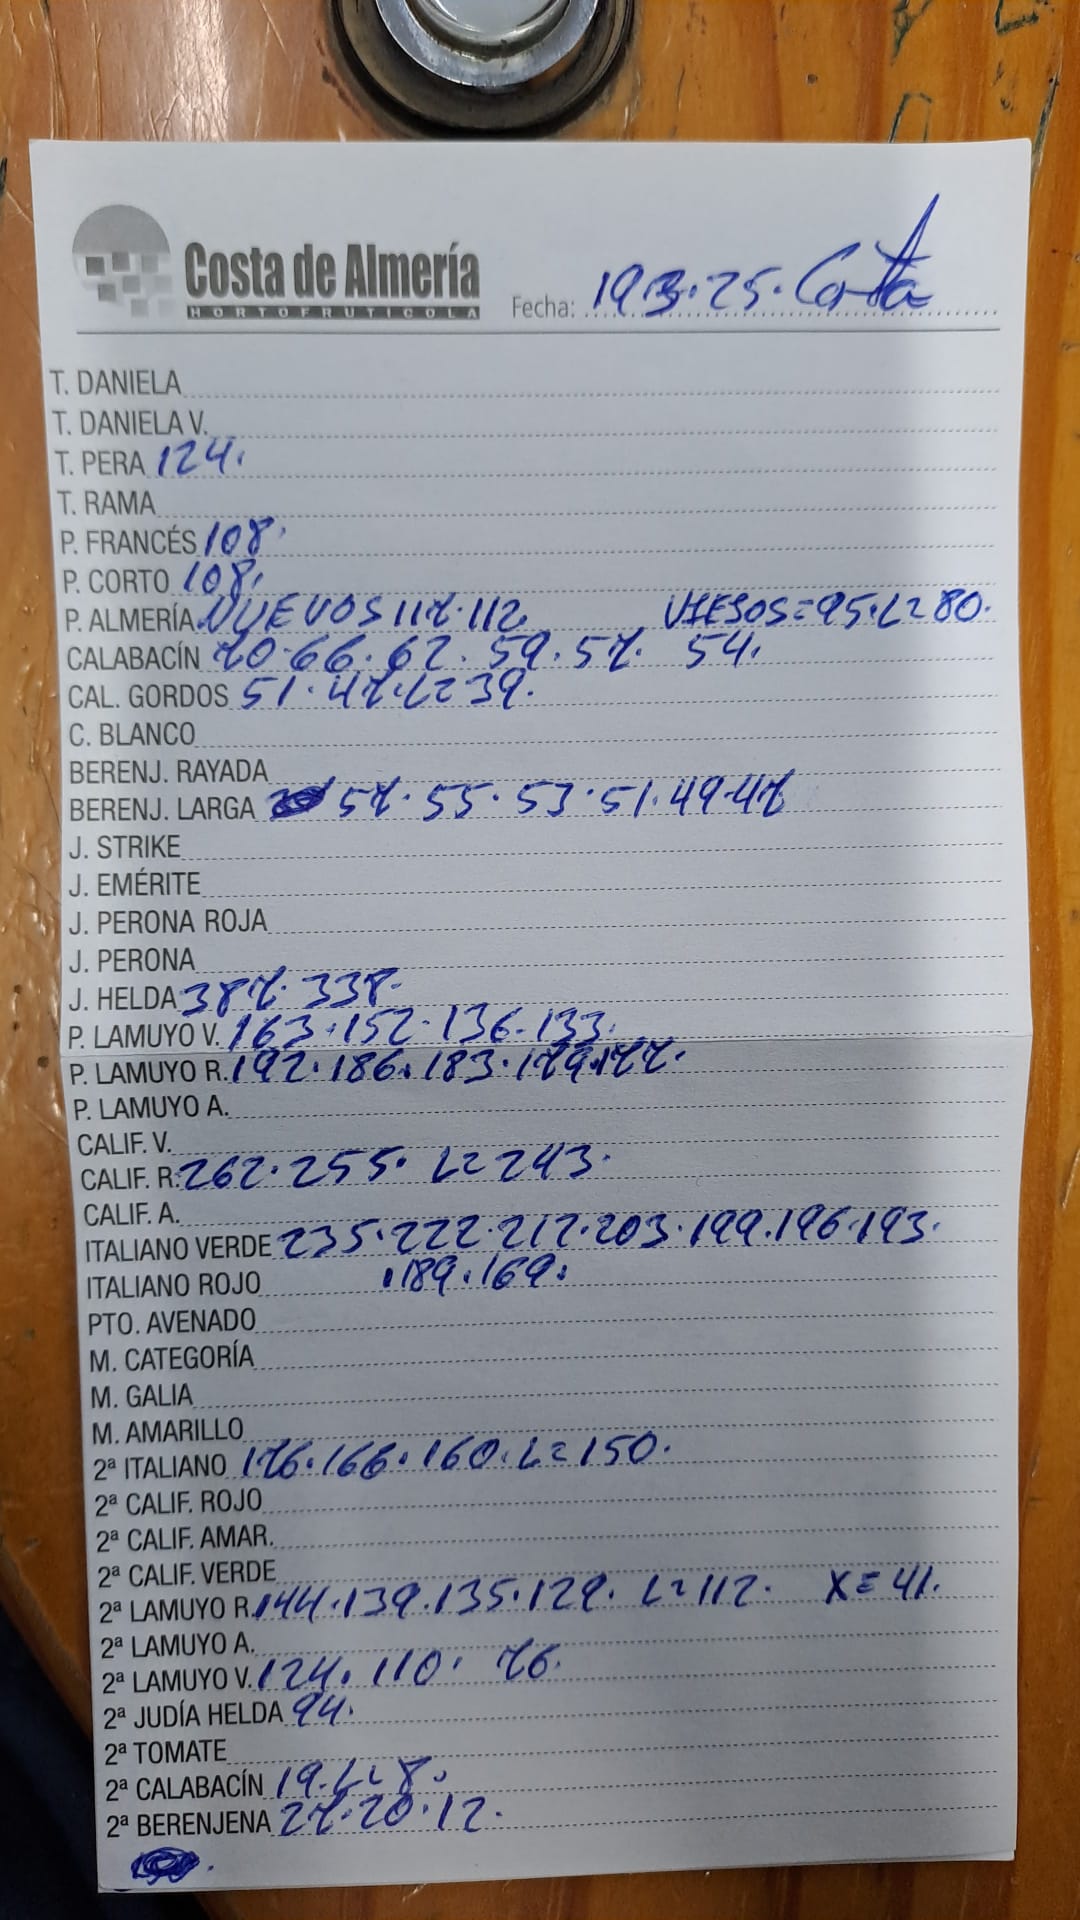 Costa de Almería
HORTOFRUTICOLA
Fecha: 19.3.25. Costa
T. DANIELA
T. DANIELA V.
T. PERA 124.
T. RAMA
P. FRANCÉS 108.
P. CORTO 108.
P. ALMERÍA NUEVOS 117.112. VIEJOS=95.L=80.
CALABACÍN 70.66.62.59.57. 54.
CAL. GORDOS 51.47.L=39.
C. BLANCO
BERENJ. RAYADA
BERENJ. LARGA 57.55.53.51.49.47
J. STRIKE
J. EMÉRITE
J. PERONA ROJA
J. PERONA
J. HELDA 387.338.
P. LAMUYO V. 163.152.136.133.
P. LAMUYO R. 192.186.183.179.177.
P. LAMUYO A.
CALIF. V.
CALIF. R. 262.255. L=243.
CALIF. A.
ITALIANO VERDE 235.222.217.203.199.196.193.
ITALIANO ROJO .189.169.
PTO. AVENADO
M. CATEGORÍA
M. GALIA
M. AMARILLO
2ª ITALIANO 176.166.160.L=150.
2ª CALIF. ROJO
2ª CALIF. AMAR.
2ª CALIF. VERDE
2ª LAMUYO R. 144.139.135.129. L=112. X=41.
2ª LAMUYO A.
2ª LAMUYO V. 124. 110. 76.
2ª JUDÍA HELDA 94.
2ª TOMATE
2ª CALABACÍN 19.L=8.
2ª BERENJENA 27.20.12.